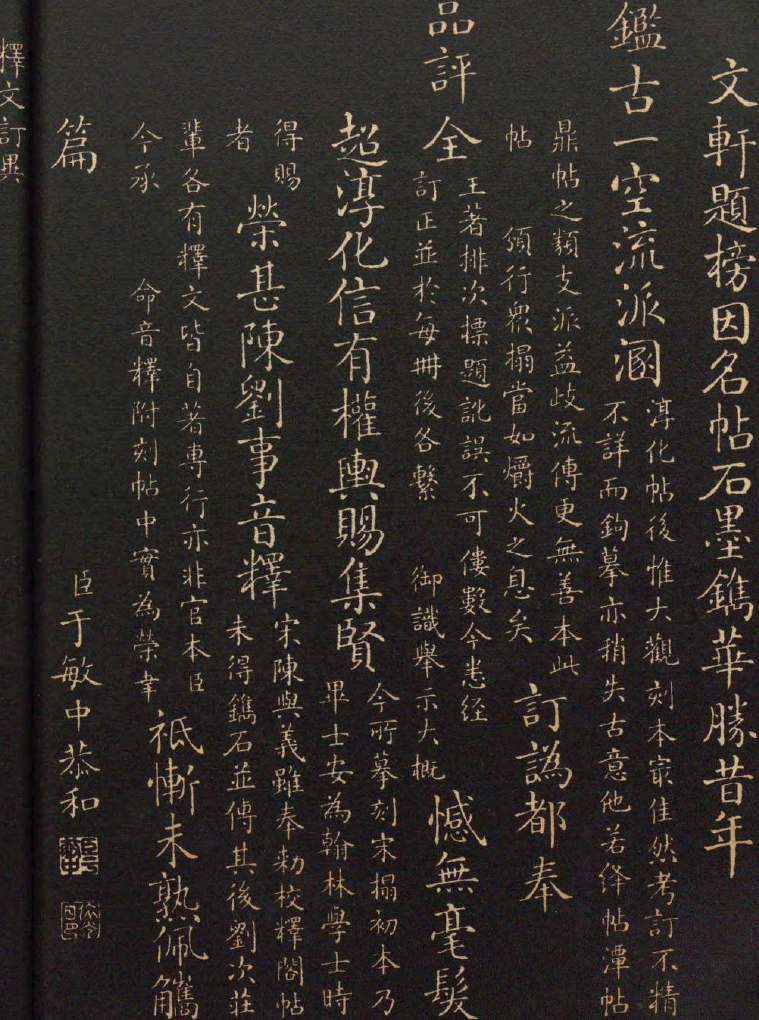 文軒題榜因名帖石墨鐫華勝昔年
鑑古一空流派溷
淳化帖後惟大觀刻本冣佳然考訂不精
不詳而鉤摹亦稍失古意他若絳帖潭帖
鼎帖之類支派益歧流傳更無善本此
帖 頒行眾搨當如爝火之息矣
訂譌都奉
品評全
王著排次標題訛誤不可僂數今悉經
訂正並於每冊後各繫 御識舉示大概
憾無毫髮
超淳化信有權輿賜集賢
今所摹刻宋搨初本乃
畢士安為翰林學士時
得賜
者
榮甚陳劉事音釋
宋陳與義雖奉勑校釋閣帖
未得鐫石並傳其後劉次莊
輩各有釋文皆自著專行亦非官本臣
今承 命音釋附刻帖中實為榮幸
祗慚未熟佩觿
篇
臣于敏中恭和
釋文訂異